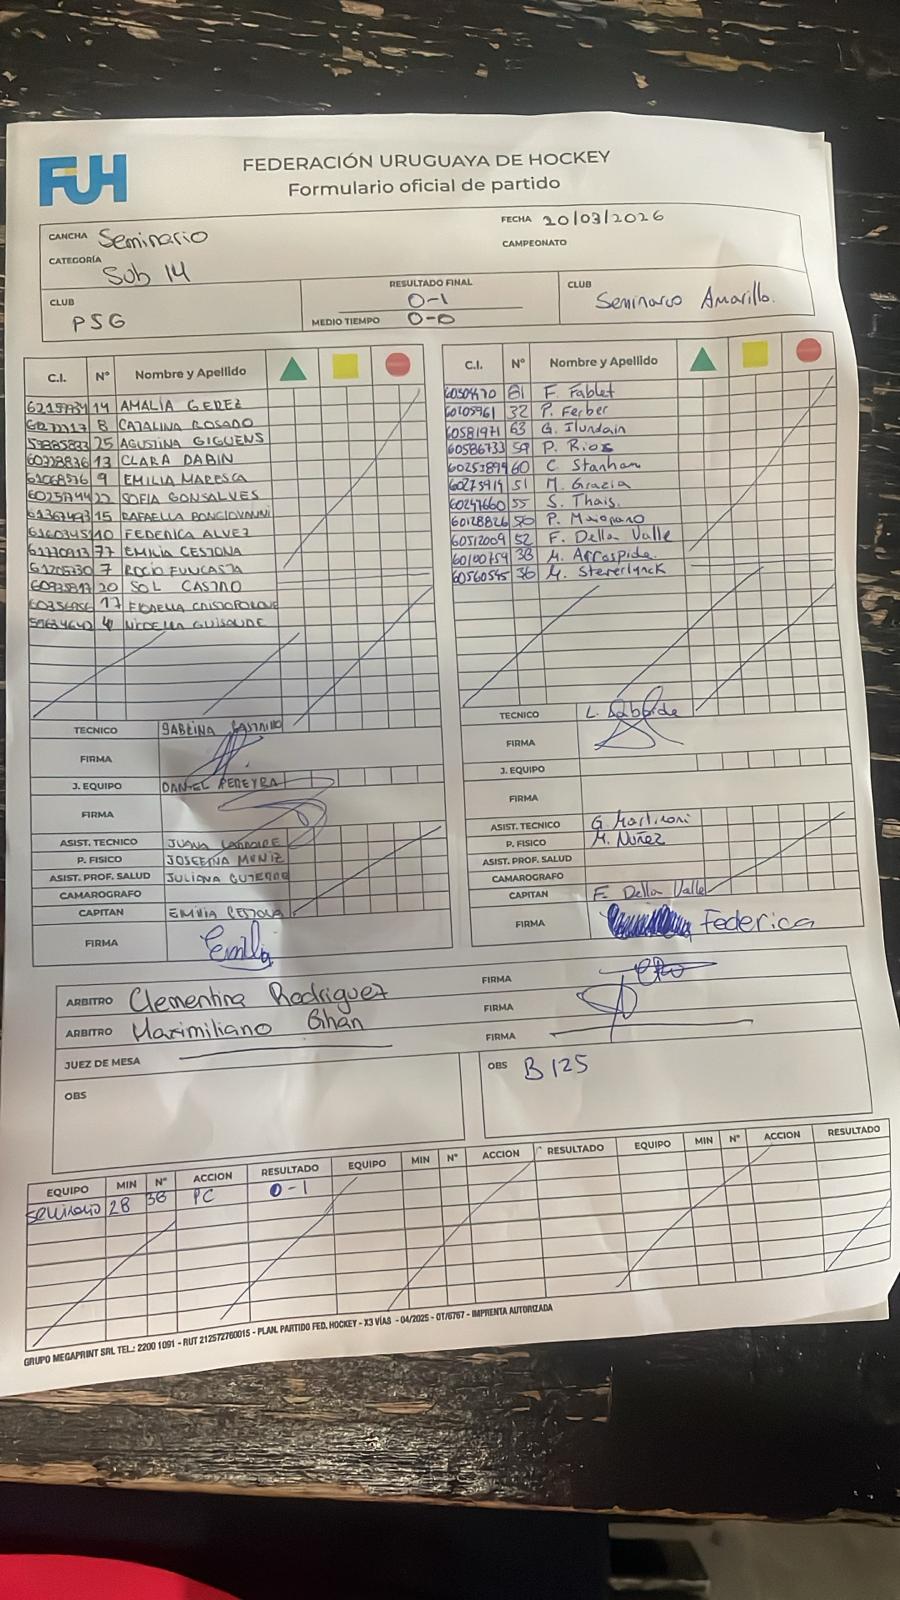 FUH
FEDERACIÓN URUGUAYA DE HOCKEY
Formulario oficial de partido
CANCHA Seminario
FECHA 20/03/2026
CATEGORÍA Sub 14
CAMPEONATO
CLUB PSG
RESULTADO FINAL 0-1
MEDIO TIEMPO 0-0
CLUB Seminario Amarillo.
C.I. Nº Nombre y Apellido
14 AMALIA GEREZ
8 CATALINA ROSANO
25 AGUSTINA GIGUENS
13 CLARA DABIN
9 EMILIA MARESCA
22 SOFIA GONSALVES
15 RAFAELLA BONGIOVANNI
10 FEDERICA ALVEZ
77 EMILIA CESTONA
7 ROCIO FUNCASTA
20 SOL CASTRO
17 FIORELLA
4
TECNICO SABRINA CASTRILLO
FIRMA
J. EQUIPO DANIEL PEREYRA
FIRMA
ASIST. TECNICO JUANA
P. FISICO JOSEFINA MUNIZ
ASIST. PROF. SALUD JULIANA
CAMAROGRAFO
CAPITAN EMILIA CESTONA
FIRMA Emilia
C.I. Nº Nombre y Apellido
81 F. Fablet
60105961 32 P. Ferber
60581971 63 G. Ilundain
60586733 59 P. Rios
60253899 60 C. Stanham
60275919 51 M. Grazia
60247660 55 S. Thais.
60128826 50 P. Maignano
60512009 52 F. Della Valle
60100759 38 M. Arrospide.
60560545 36 M. Steverlynck
TECNICO L. Labbide
FIRMA
J. EQUIPO
FIRMA
ASIST. TECNICO G. Martinoni
P. FISICO M. Nuñez
ASIST. PROF. SALUD
CAMAROGRAFO
CAPITAN F. Della Valle
FIRMA Federica
ARBITRO Clementina Rodriguez FIRMA
ARBITRO Maximiliano Bihan FIRMA
JUEZ DE MESA FIRMA
OBS
OBS B 125
EQUIPO MIN Nº ACCION RESULTADO EQUIPO MIN Nº ACCION RESULTADO EQUIPO MIN Nº ACCION RESULTADO
seminario 28 38 PC 0-1
GRUPO MEGAPRINT SRL TEL.: 2200 1091 - RUT 212572760015 - PLAN. PARTIDO FED. HOCKEY - X3 VÍAS - 04/2025 - OT/6767 - IMPRENTA AUTORIZADA